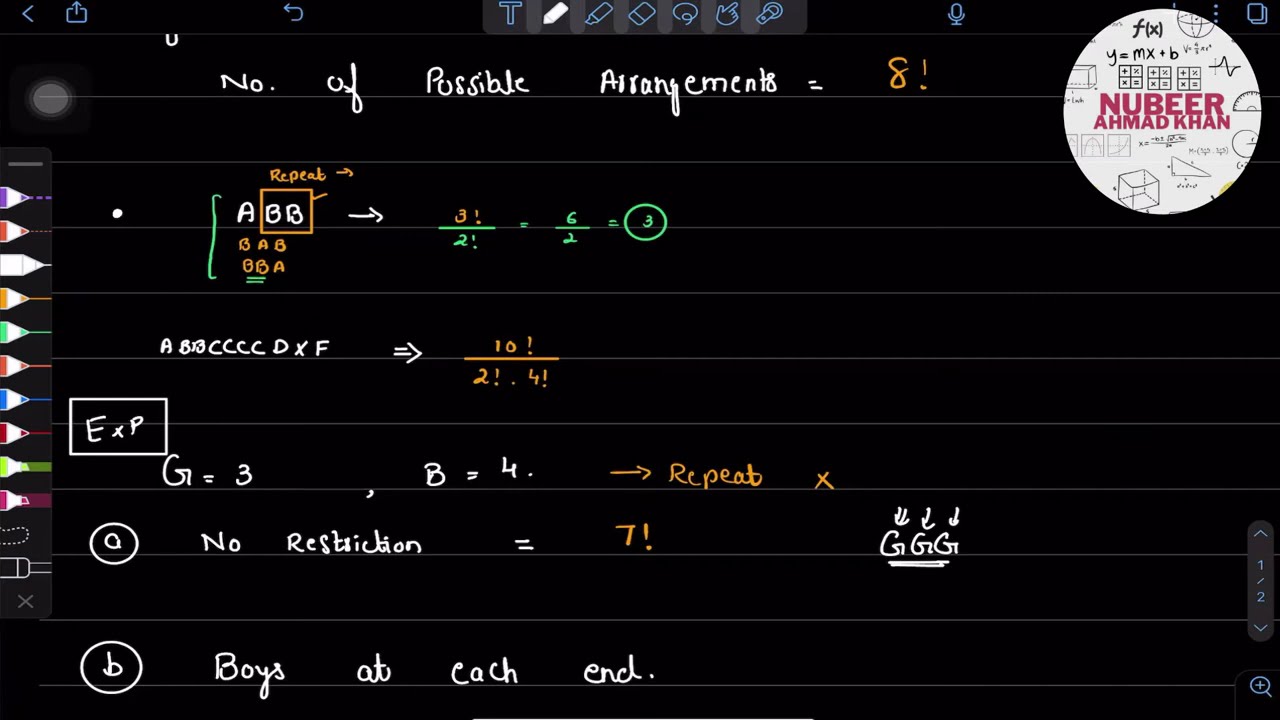 No. of Possible Arrangements = 8!
f(x)
y = mx + b
NUBEER
AHMAD KHAN
Repeat →
• A BB → 3!/2! = 6/2 = 3
B A B
B B A
A B B C C C C D X F ⇒ 10!/2! . 4!
Exp
G = 3 , B = 4. → Repeat x
(a) No Restriction = 7! GGG
(b) Boys at each end.
1/2